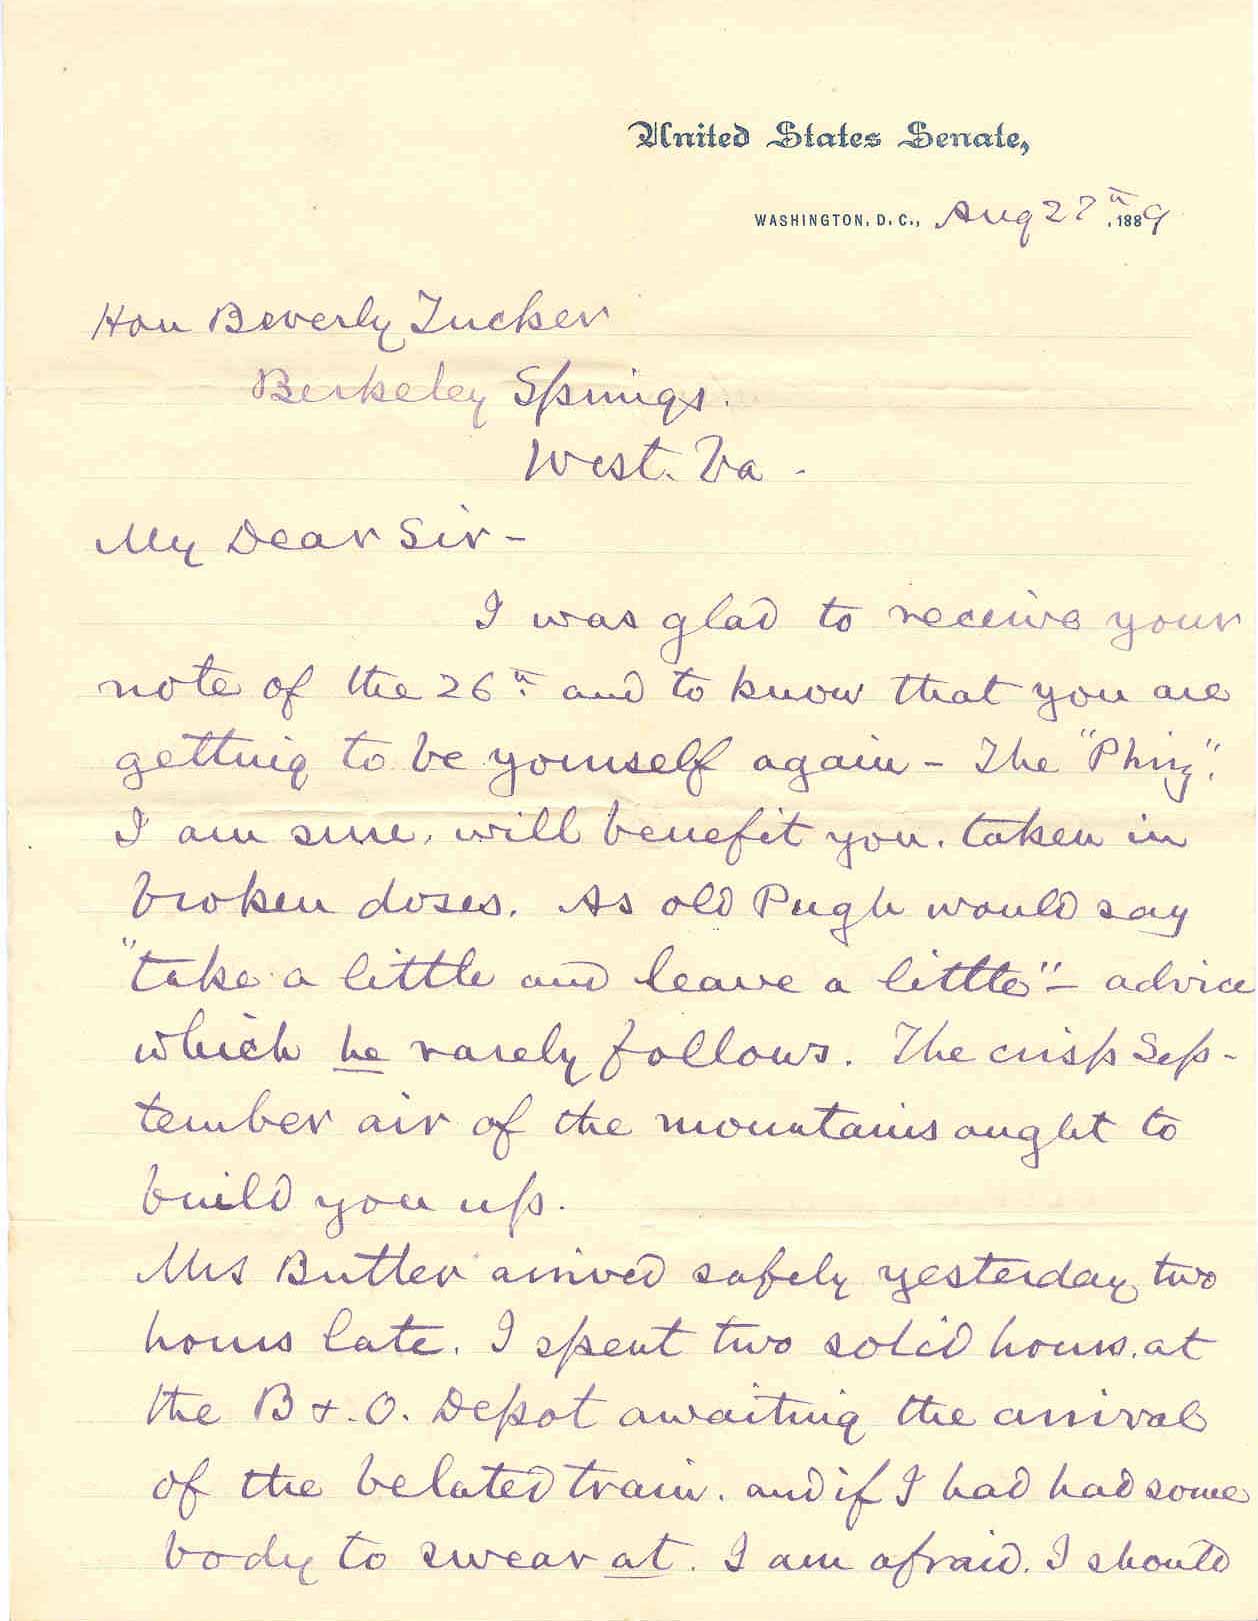 United States Senate,
WASHINGTON, D. C., Aug 27th, 1889
Hon Beverly Tucker
Berkeley Springs.
West. Va -
My Dear Sir -
I was glad to receive your
note of the 26th and to know that you are
getting to be yourself again - The "Phiz".
I am sure, will benefit you. taken in
broken doses. As old Pugh would say
"take a little and leave a little" - advice
which he rarely follows. The crisp Sep-
tember air of the mountains ought to
build you up.
Mrs Butler arrived safely yesterday two
hours late. I spent two solid hours. at
the B &. O. Depot awaiting the arrival
of the belated train. and if I had had some
body to swear at. I am afraid. I should